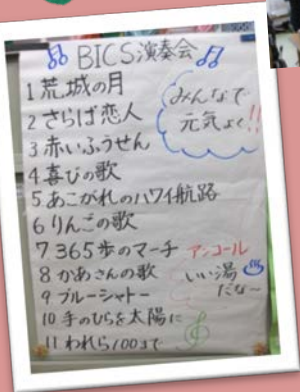 BICS演奏会
1 荒城の月
2 さらば恋人
3 赤いふうせん
4 喜びの歌
5 あこがれのハワイ航路
6 りんごの歌
7 365歩のマーチ
8 かあさんの歌
9 ブルーシャトー
10 手のひらを太陽に
11 われら100まで
みんなで
元気よく!!
アンコール
いい湯
だな～